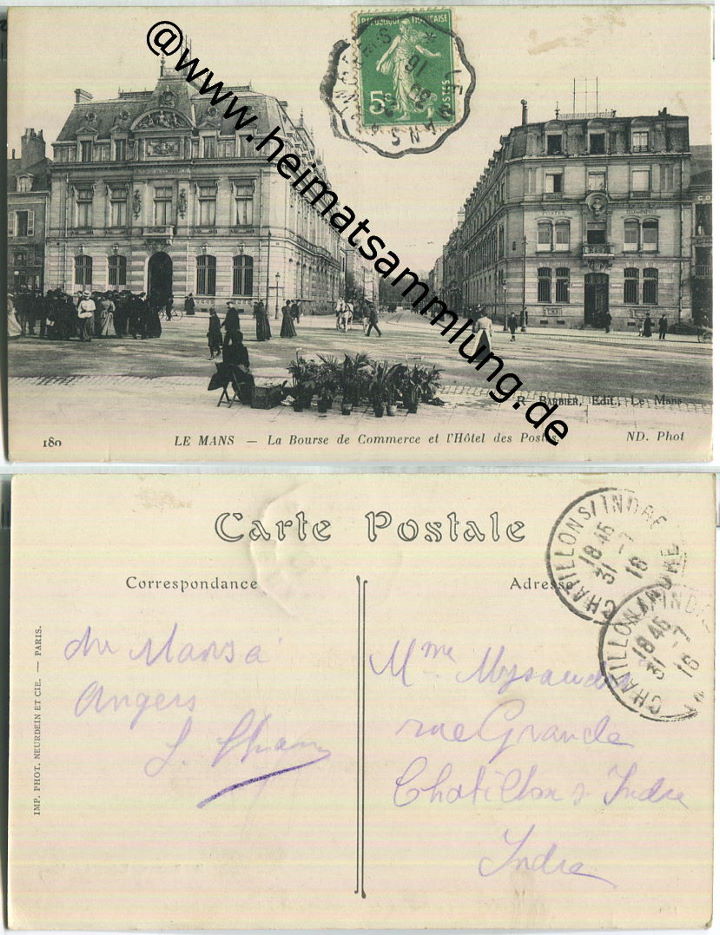 @www.heimatsammlung.de
REPUBLIQUE FRANÇAISE
5c
POSTES
LE MANS
R. BARBIER, Edit., Le Mans
180 LE MANS — La Bourse de Commerce et l'Hôtel des Postes ND. Phot
Carte Postale
Correspondance
Adresse
CHATILLON S/INDRE
18 45
31 -7
16
CHATILLON S/INDRE
18 45
31 -7
16
IMP. PHOT. NEURDEIN ET CIE. — PARIS.
du Mans à
Angers
Mme
rue Grande
Chatillon s Indre
Indre